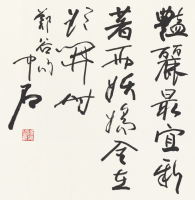 艷麗最宜新
著雨妖嬈全在
欲開時
鄭谷詩
中石